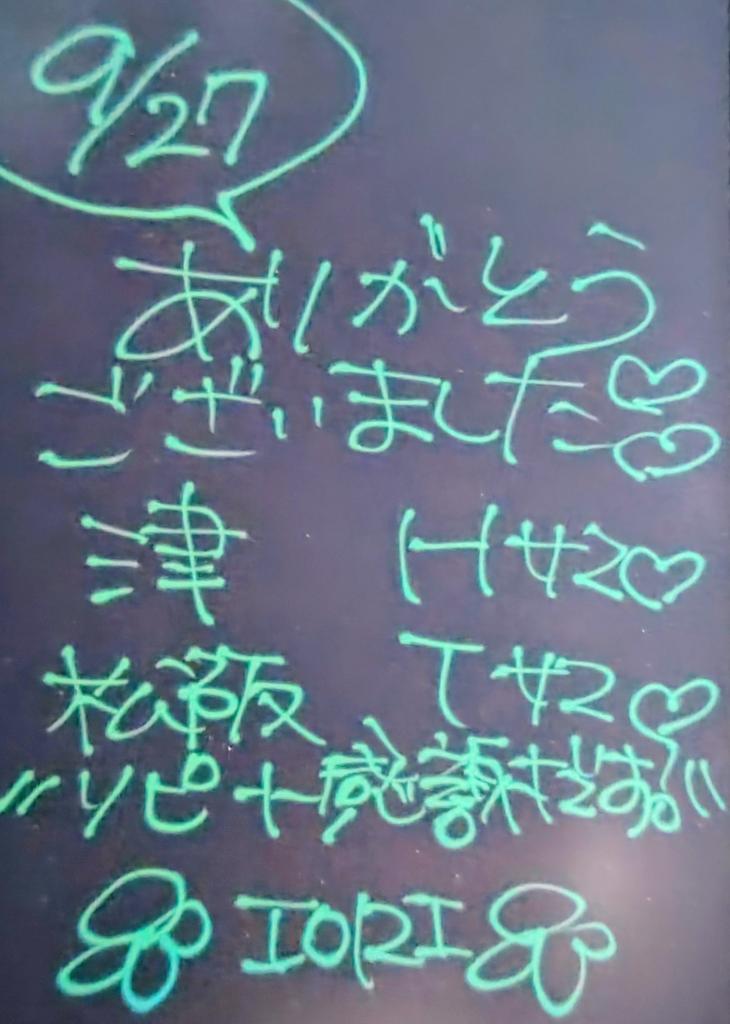 9/27
ありがとう
ございました♡♡
津 Hサン♡
松阪 Tサン♡
リピート感謝です。
IORI